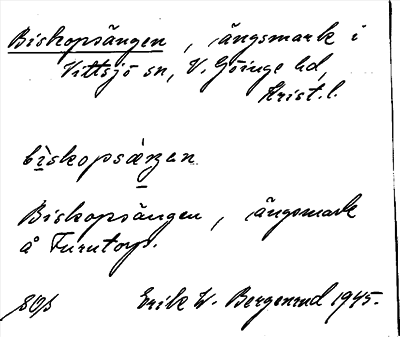 Biskopsängen, ängsmark i
Vittsjö sn, V. Göinge hd,
Krist. l.
biskopsäŋen
Biskopsängen, ängsmark
å Furutorp.
Erik W. Bergenrud 1945.